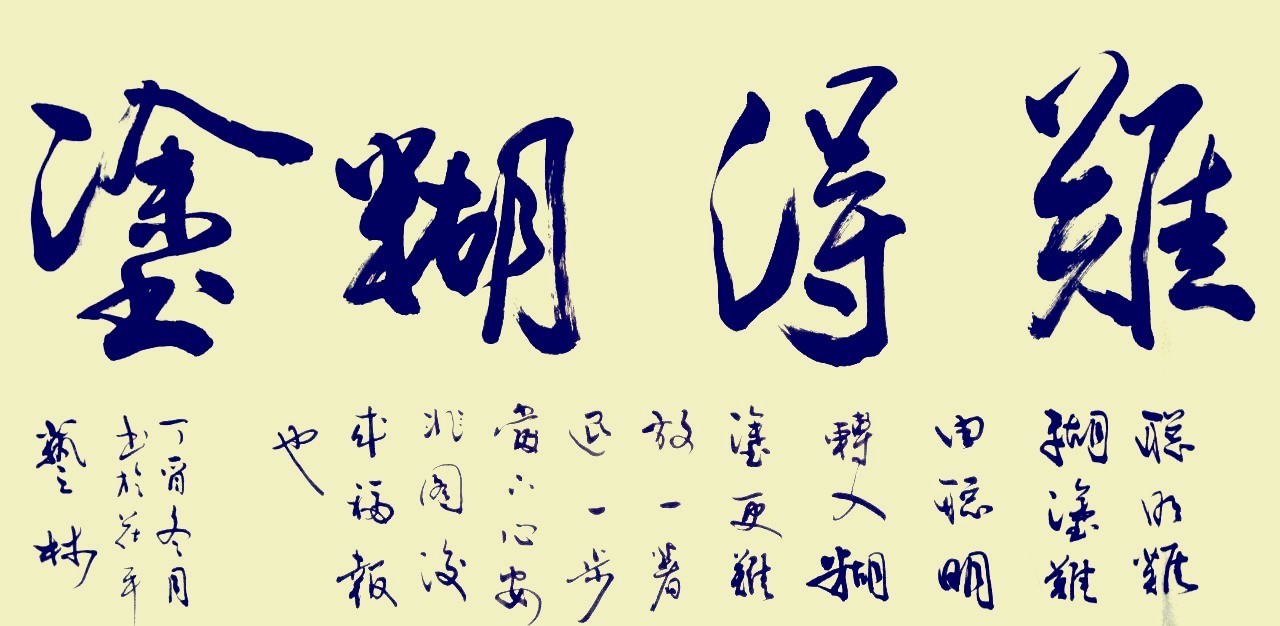 難得糊塗
聰明難
糊塗難
由聰明
轉入糊
塗更難
放一著
退一步
當下心安
非圖後
來福報
也
丁酉冬月
书於茌平
藝林